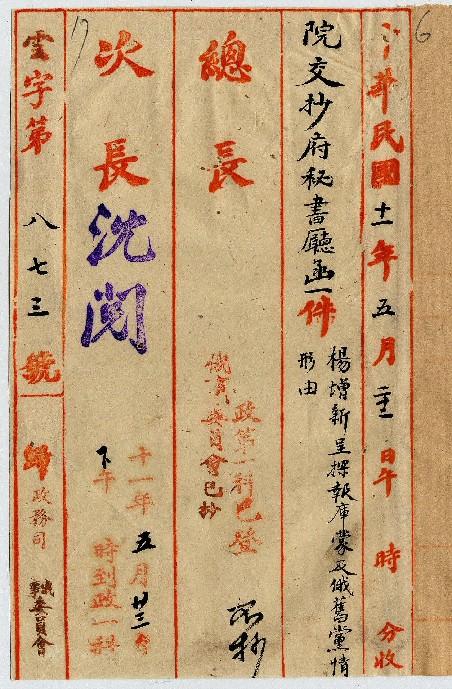 6
中華民國十一年五月 日午 時 分收
院交抄府秘書廳函一件
楊增新呈探報庫蒙及俄舊黨情
形由
總長
政第一科已登
俄事委員會已抄
次長 沈閱
十一年五月廿三日
下午 時到政一科
17
雲字第八七三號
歸政務司
俄事委員會